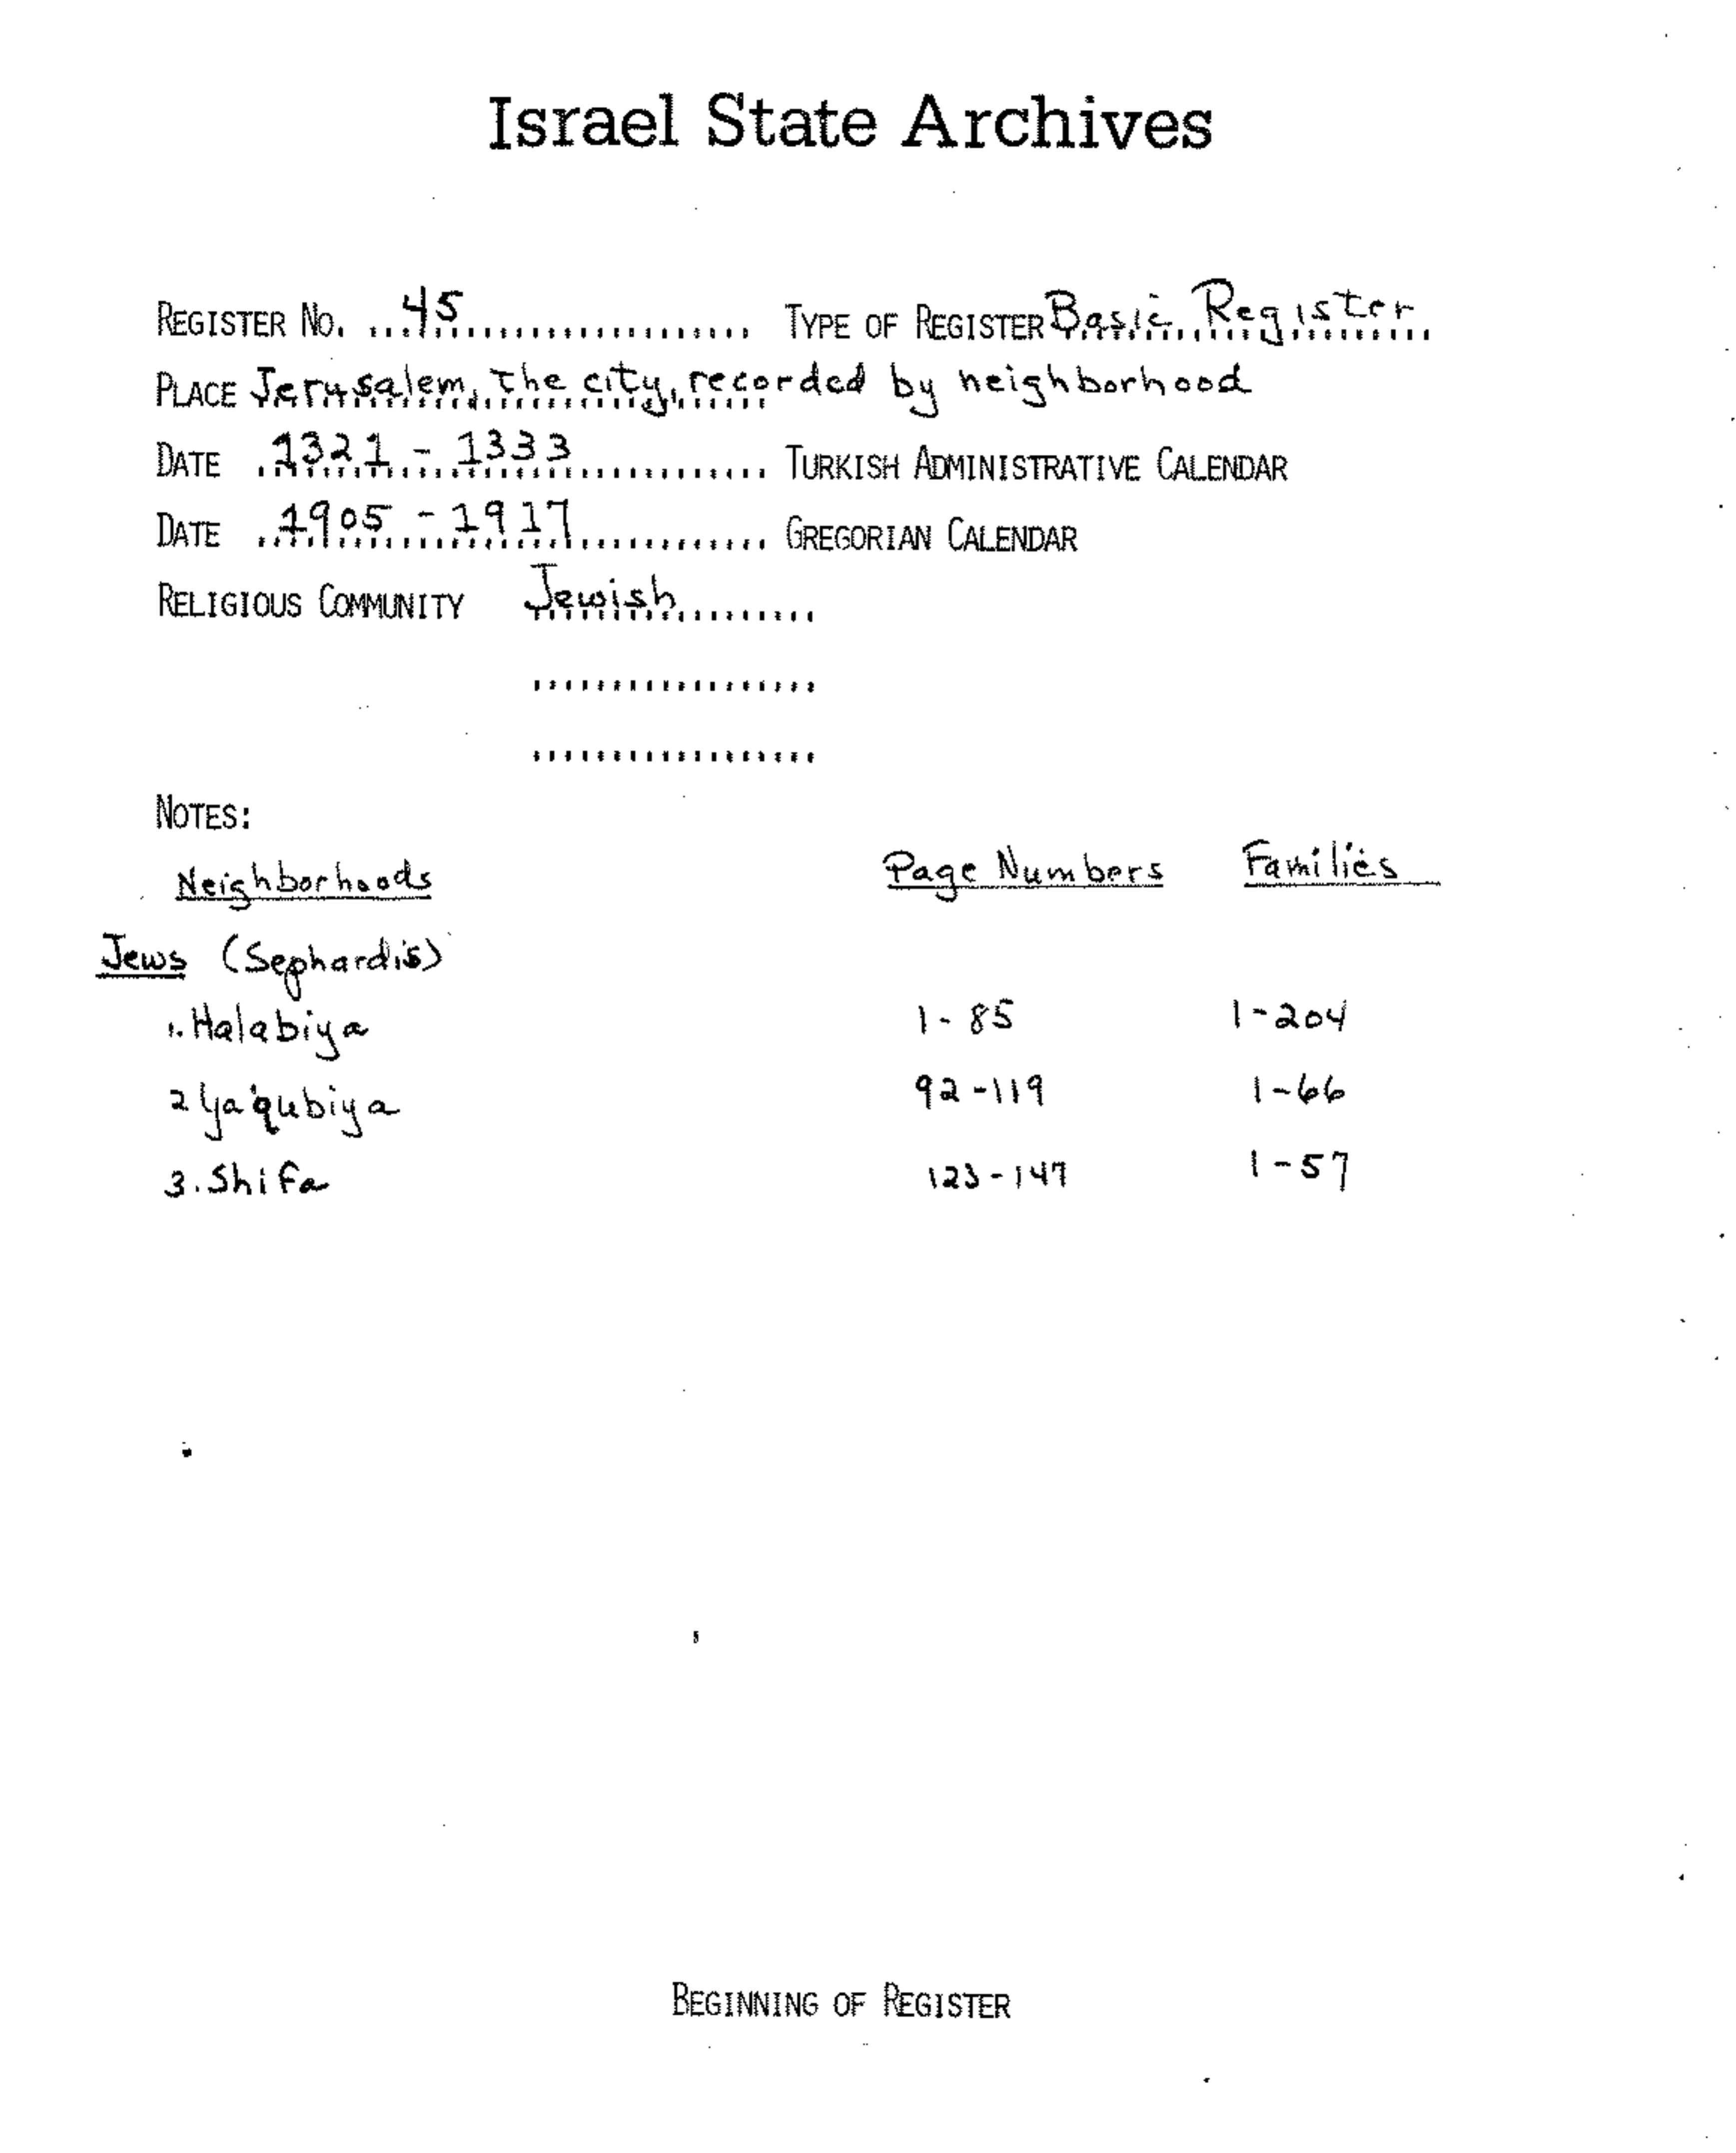 Israel State Archives
REGISTER No. ...45................... TYPE OF REGISTER Basic Register
PLACE Jerusalem, the city, recorded by neighborhood
DATE 1321 - 1333 TURKISH ADMINISTRATIVE CALENDAR
DATE 1905 - 1917 GREGORIAN CALENDAR
RELIGIOUS COMMUNITY Jewish
NOTES:
Neighborhoods Page Numbers Families
Jews (Sephardis)
1. Halabiya 1-85 1-204
2 Ya'qubiya 92-119 1-66
3. Shifa 123-147 1-57
BEGINNING OF REGISTER